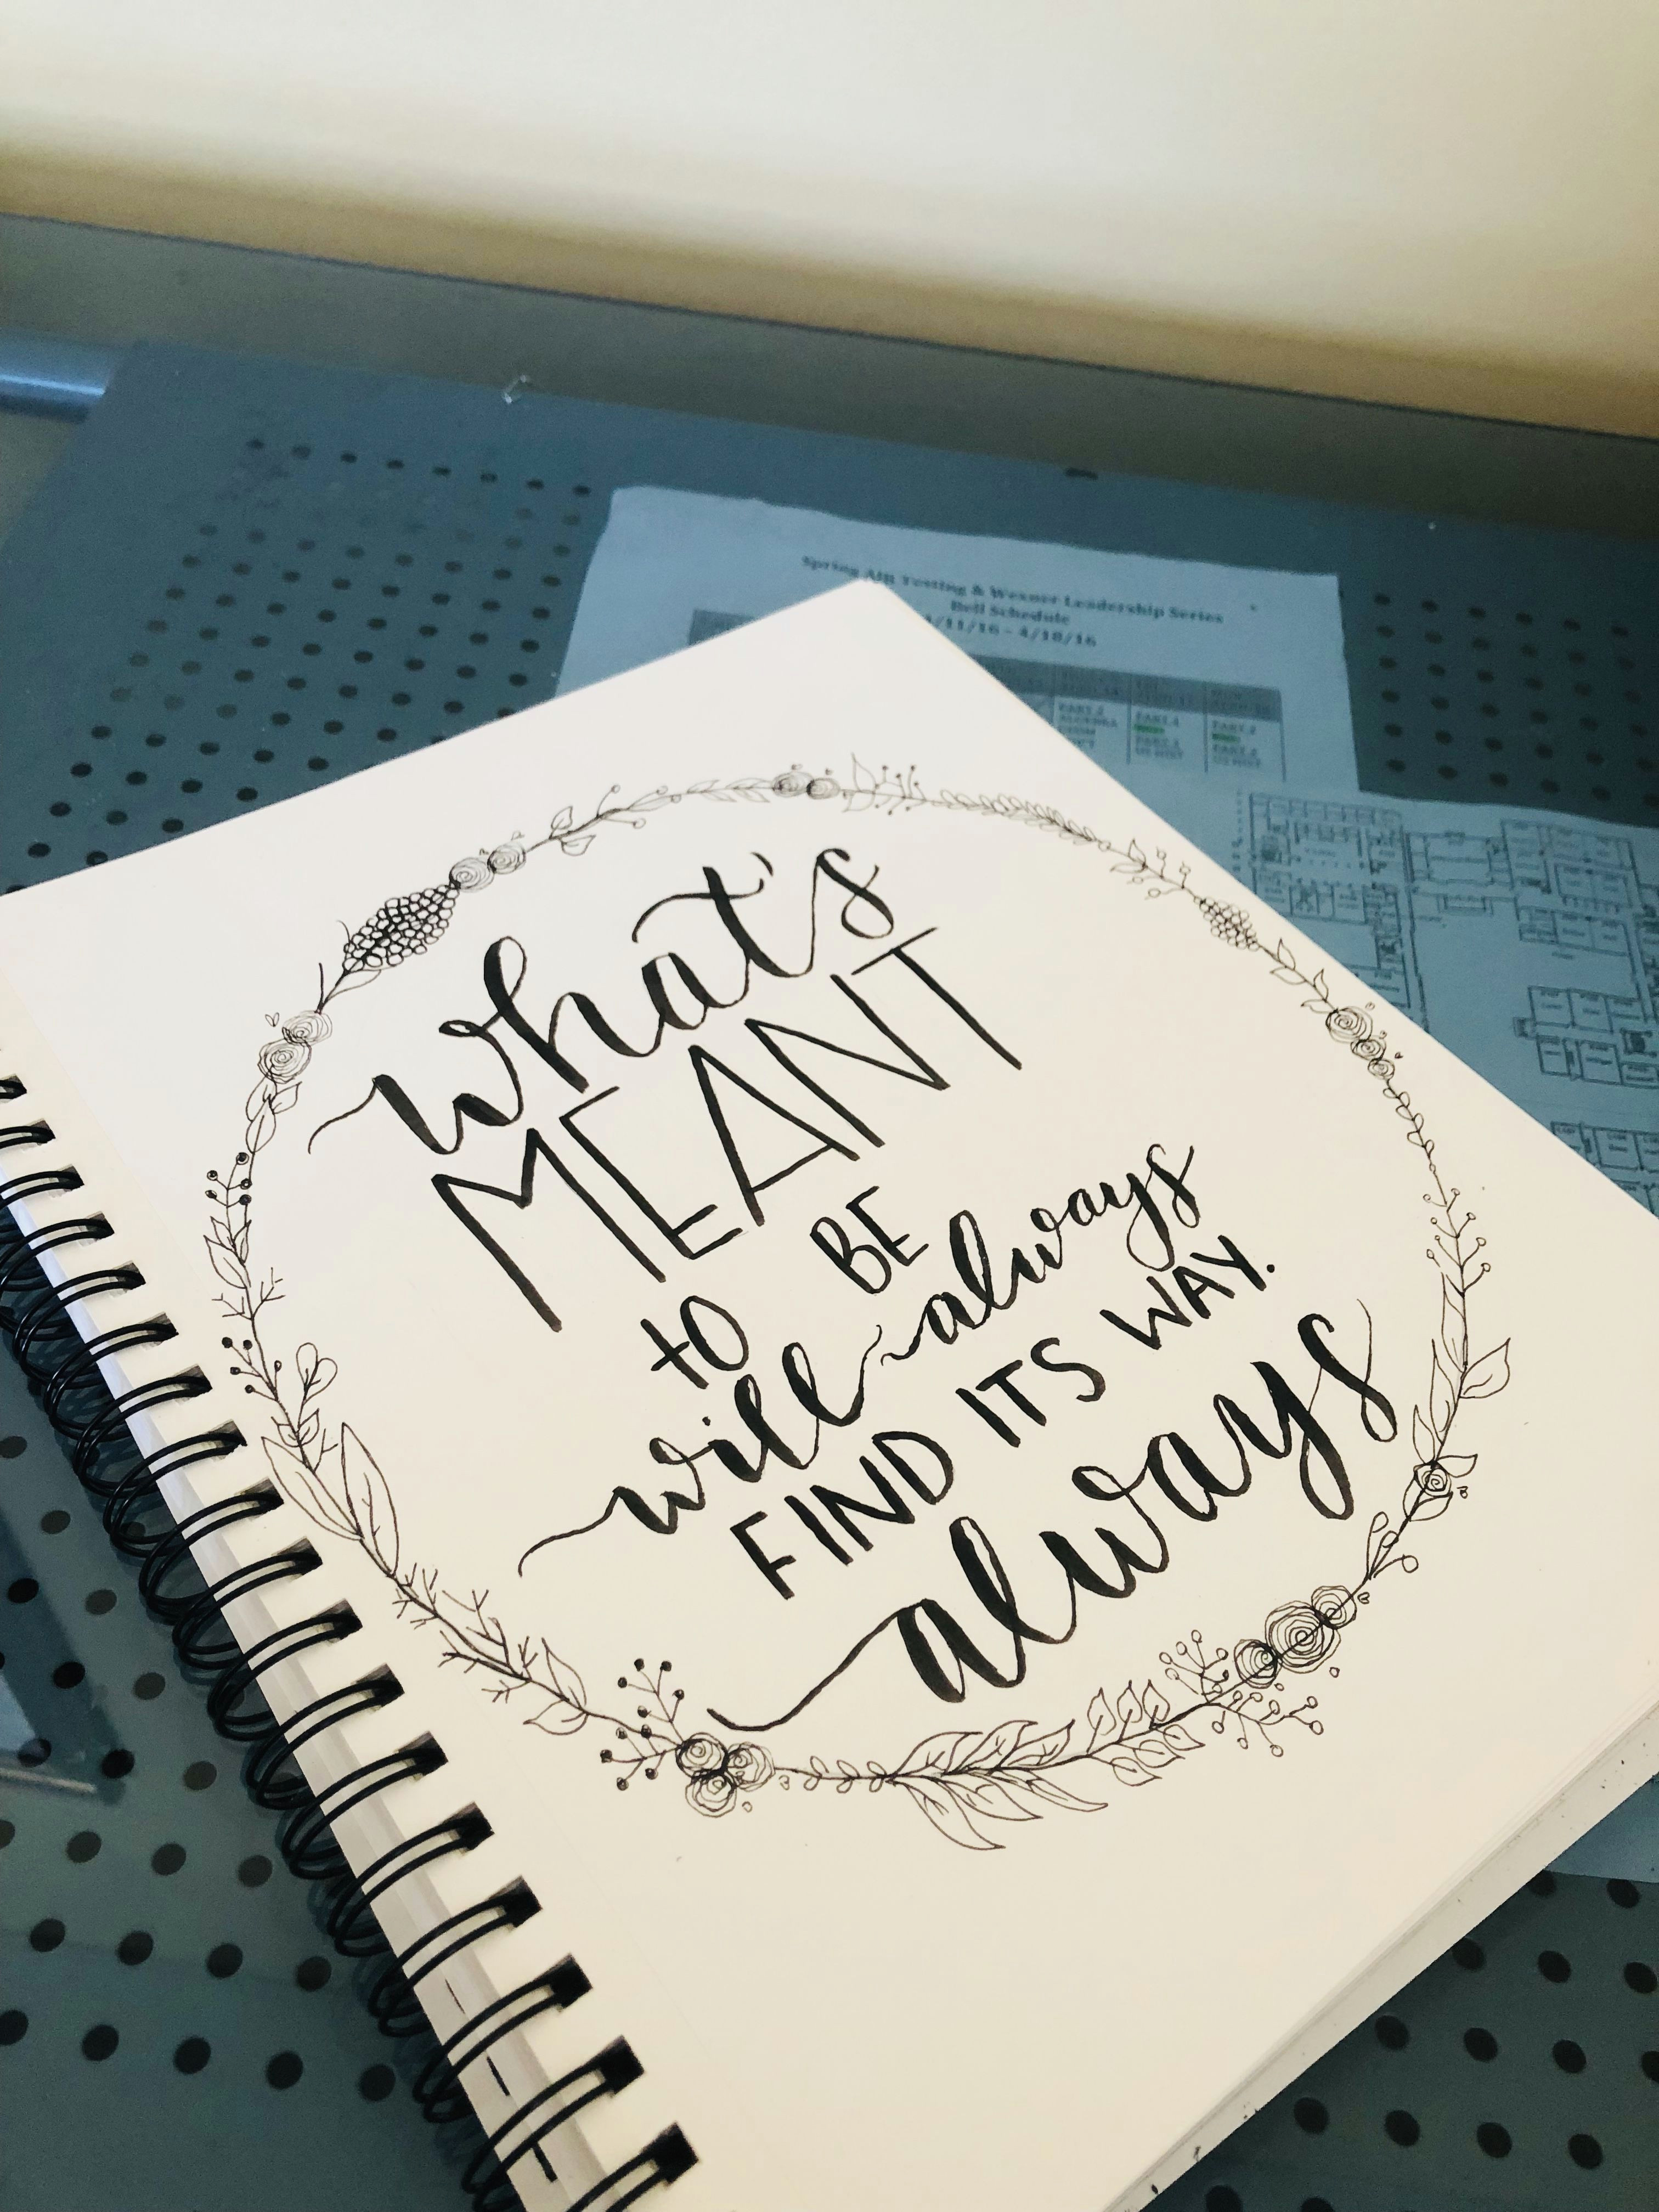 Spring AIR Testing & Wexner Leadership Series
Bell Schedule
4/11/16 - 4/18/16
PART 2 PART 1 PART 2
ALGEBRA
PART 2
US HIST US HIST
what's
MEANT
to BE
will always
FIND ITS WAY.
always